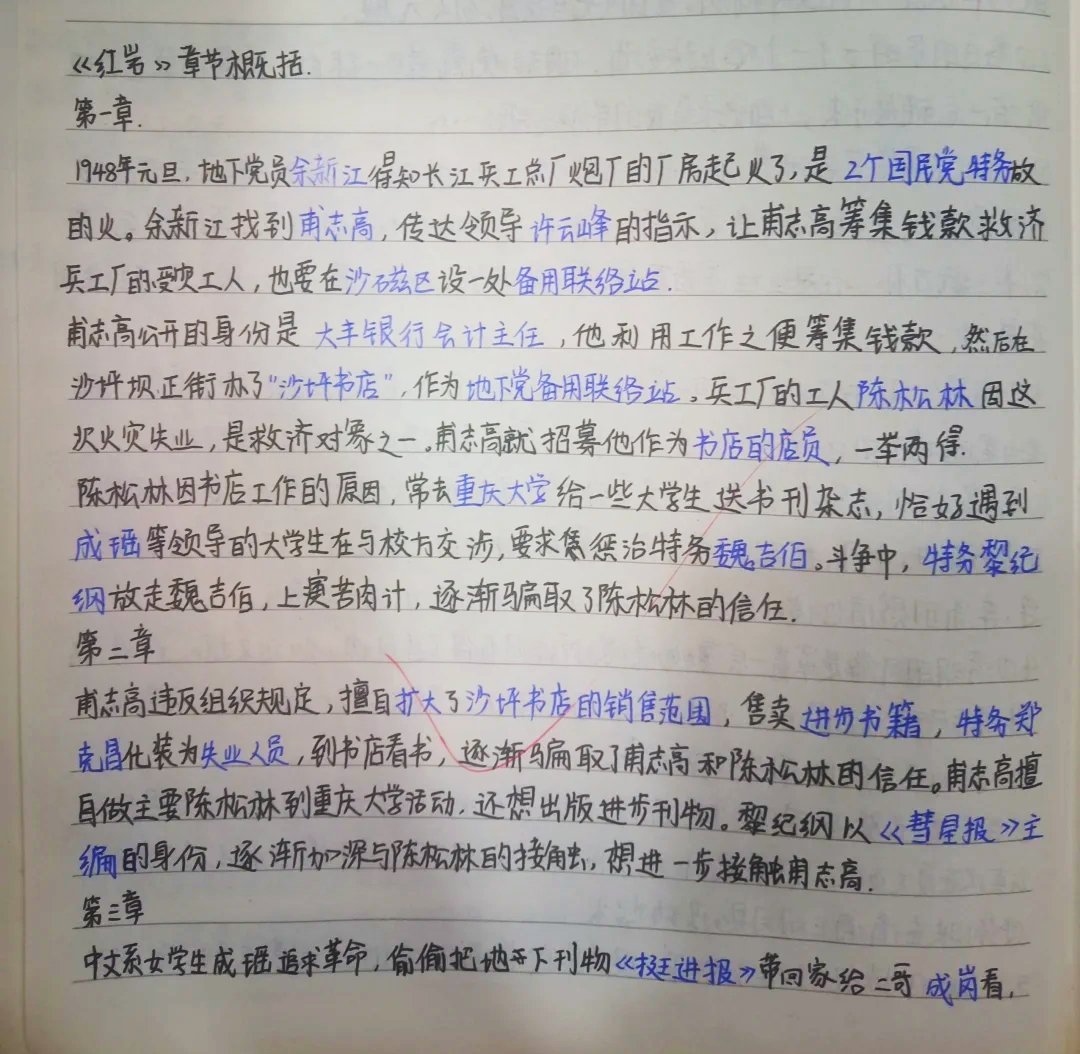 《红岩》章节概括.
第一章.
1948年元旦,地下党员余新江得知长江兵工总厂炮厂的厂房起火了,是2个国民党特务放
的火。余新江找到甫志高,传达领导许云峰的指示,让甫志高筹集钱款救济
兵工厂的受灾工人,也要在沙磁区设一处备用联络站.
甫志高公开的身份是大丰银行会计主任,他利用工作之便筹集钱款,然后在
沙坪坝正街办了“沙坪书店”,作为地下党备用联络站。兵工厂的工人陈松林因这
次火灾失业,是救济对象之一。甫志高就招募他作为书店的店员,一举两得.
陈松林因书店工作的原因,常去重庆大学给一些大学生送书刊杂志,恰好遇到
成瑶等领导的大学生在与校方交涉,要求惩治特务魏吉伯。斗争中,特务黎纪
纲放走魏吉伯,上演苦肉计,逐渐骗取了陈松林的信任.
第二章
甫志高违反组织规定,擅自扩大了沙坪书店的销售范围,售卖进步书籍,特务郑
克昌化装为失业人员,到书店看书,逐渐骗取了甫志高和陈松林的信任。甫志高擅
自做主要陈松林到重庆大学活动,还想出版进步刊物。黎纪纲以《彗星报》主
编的身份,逐渐加深与陈松林的接触,想进一步接触甫志高.
第三章
中文系女学生成瑶追求革命,偷偷把地下刊物《挺进报》带回家给二哥成岗看,